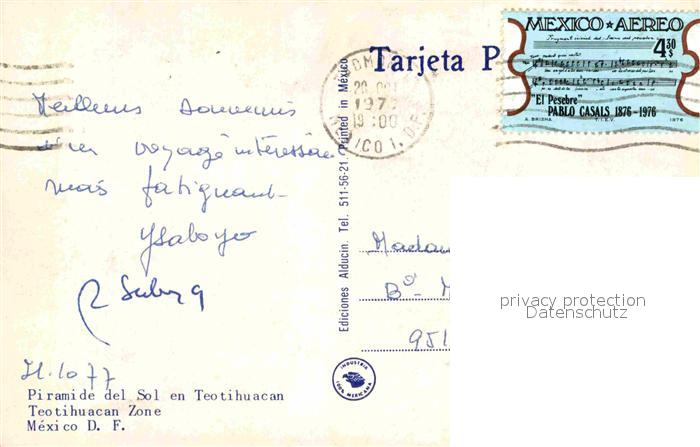 Meilleurs souvenirs
d'un voyage intéressant
mais fatiguant
21.10 77
Piramide del Sol en Teotihuacan
Teotihuacan Zone
México D. F.
Ediciones Alducin. Tel. 511-56-21. Printed in México
Tarjeta P
MEXICO ★ AEREO
4.30
$
"El Pesebre
PABLO CASALS 1876-1976
T.I.E.V.
1976
OCT
197
19:00
MEXICO 1, D.F.
Madam
Bd M
951
INDUSTRIA
100% MEXICANA
privacy protection
Datenschutz